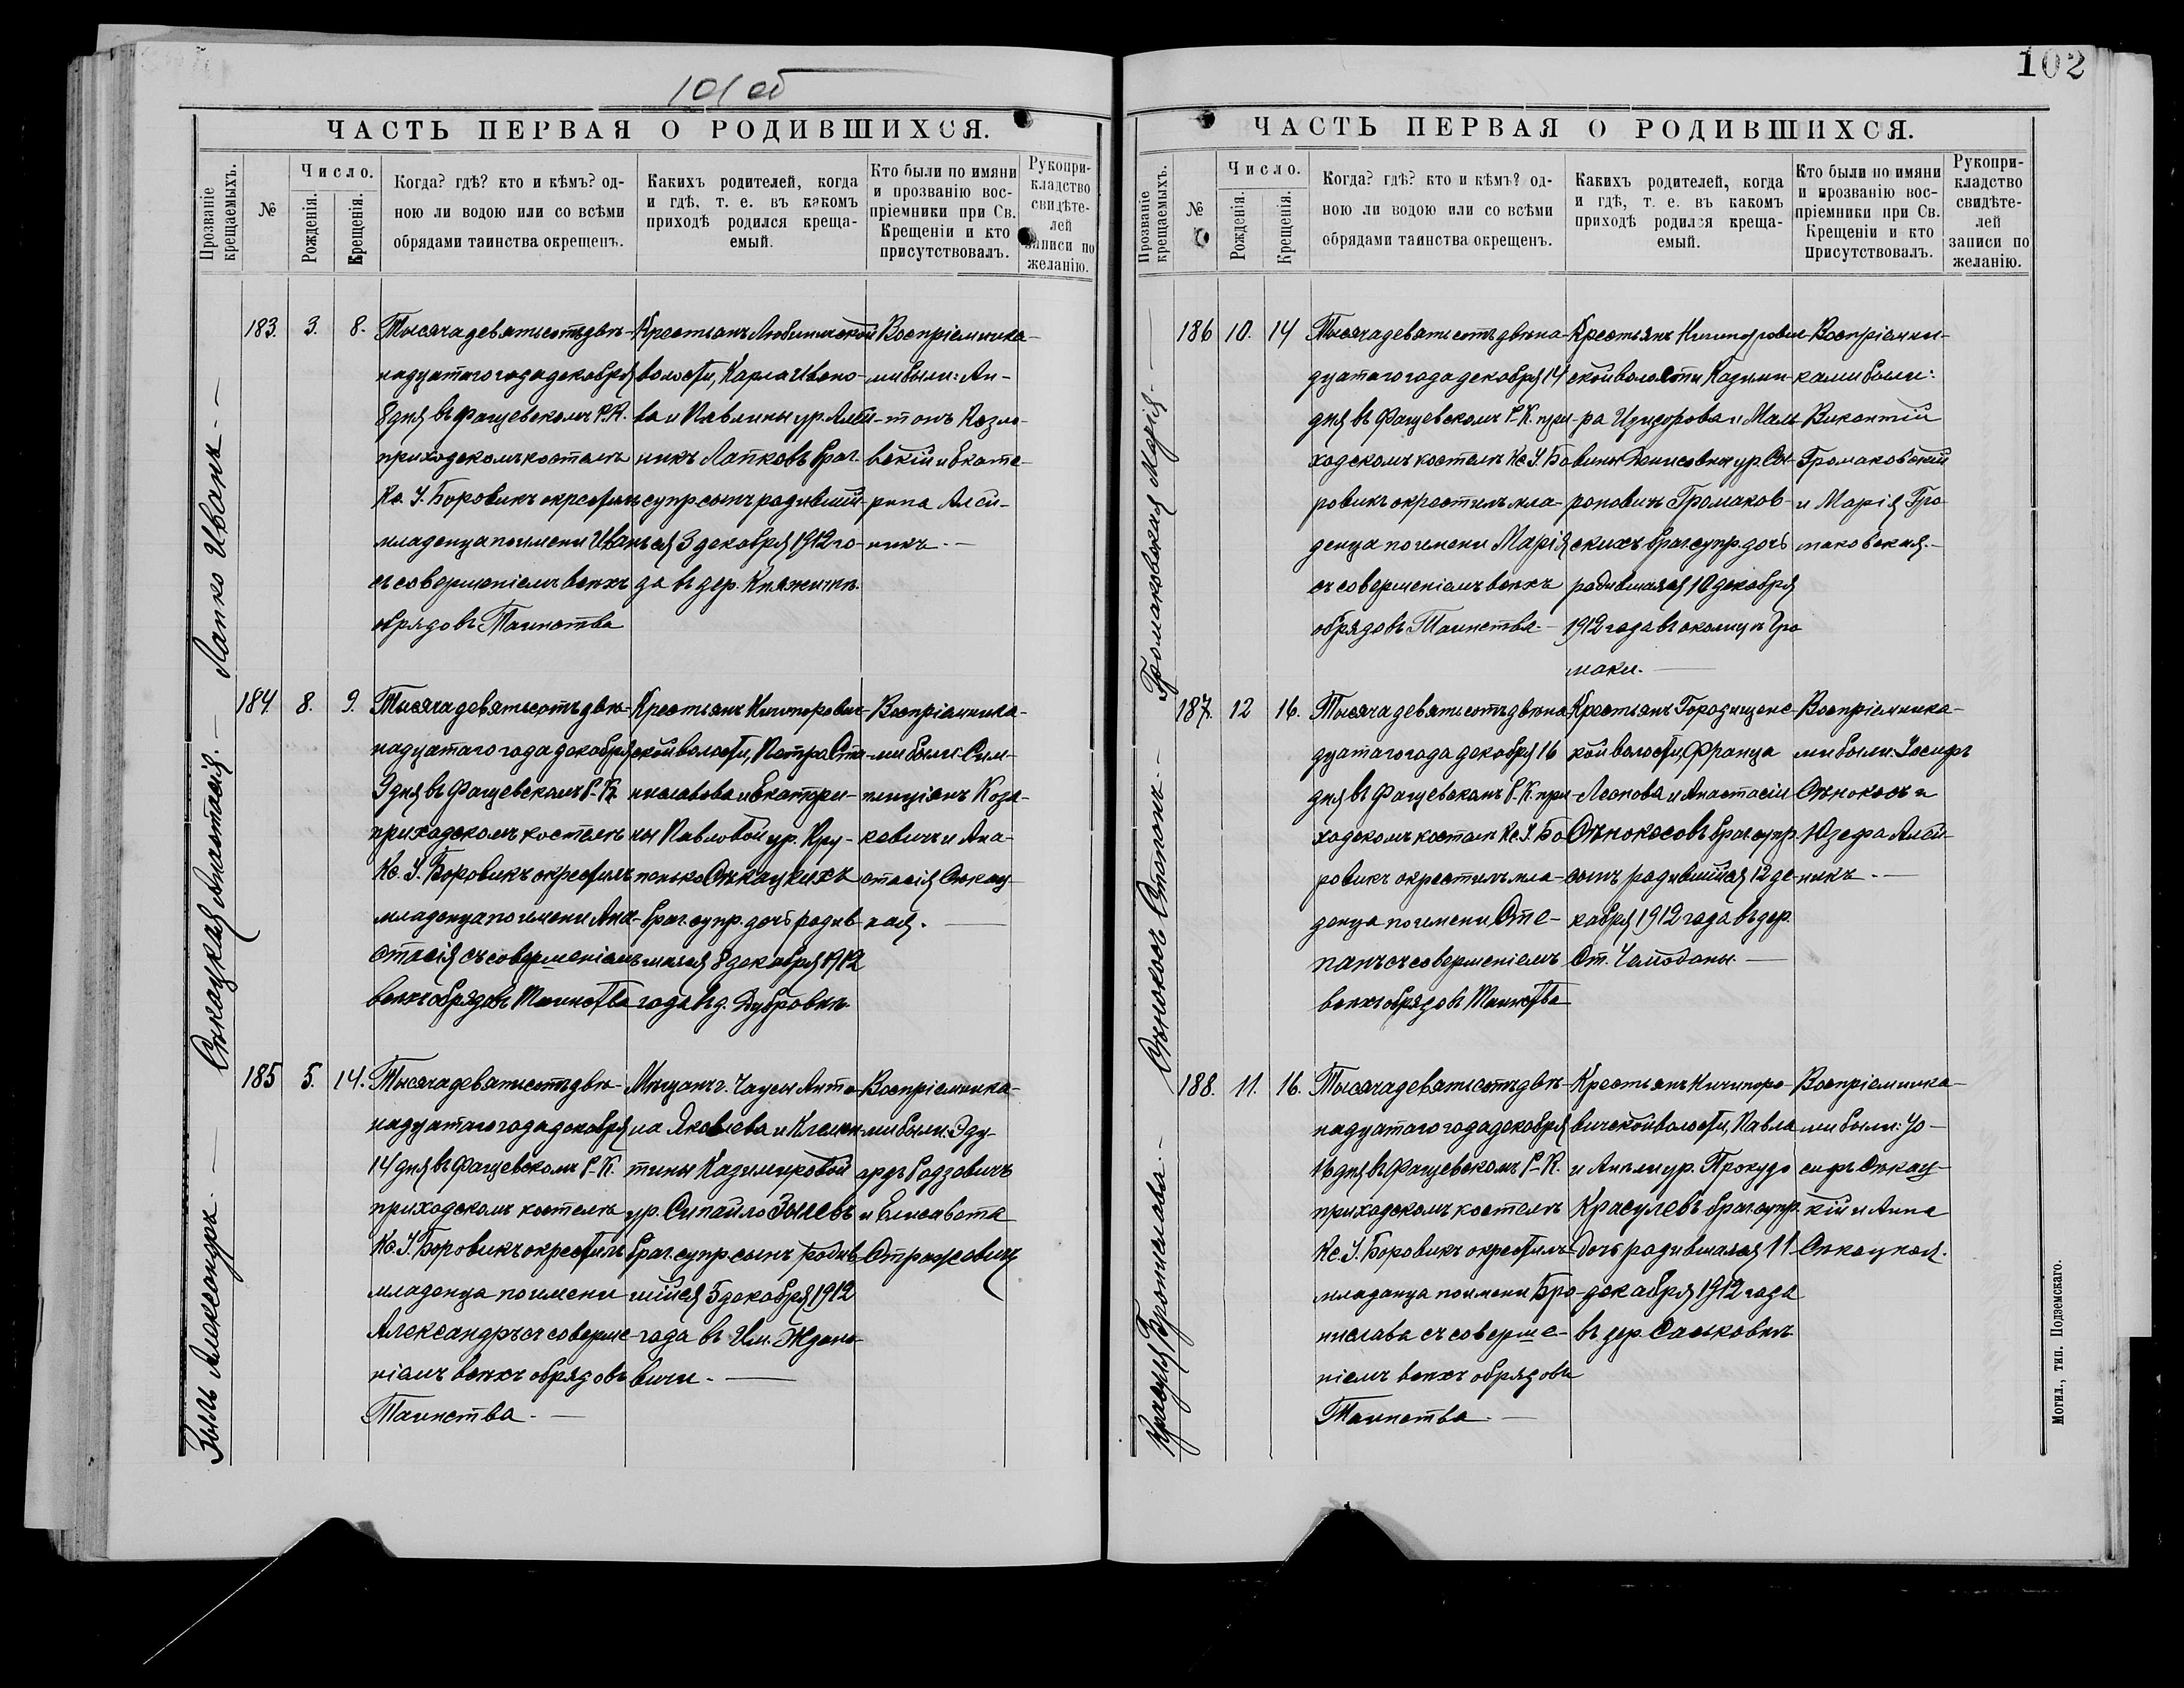 101 об
ЧАСТЬ ПЕРВАЯ О РОДИВШИХСЯ.
Прозваніе крещаемыхъ.
№
Число.
Рожденія.
Крещенія.
Когда? гдѣ? кто и кѣмъ? од-
ною ли водою или со всѣми
обрядами таинства окрещенъ.
Какихъ родителей, когда
и гдѣ, т. е. въ какомъ
приходѣ родился креща-
емый.
Кто были по имяни
и прозванію вос-
пріемники при Св.
Крещеніи и кто
присутствовалъ.
Рукопри-
кладство
свидѣте-
лей
записи по
желанію.
Лапко Иванъ.
183. 3. 8.
Тысяча девятьсотъ двѣ-
надцатаго года декабря
8 дня въ Фащевскомъ Р.К.
приходскомъ костелѣ
Кс. У. Боровикъ окрестилъ
младенца по имени Иванъ
съ совершеніемъ всѣхъ
обрядовъ Таинства
Крестьянъ Любиничской
волости, Карла Ивано-
ва и Павлины ур. Алей-
никъ Лапковъ брач.
супр. сынъ родивший-
ся 3 декабря 1912 го-
да въ дер. Княжичи.
Воспріемника-
ми были: Ан-
тонъ Козло-
вскій и Екате-
рина Алей-
никъ.
Сѣкацкая Анастасія.
184. 8. 9.
Тысяча девятьсотъ двѣ-
надцатаго года декабря
9 дня въ Фащевскомъ Р.-К.
приходскомъ костелѣ
Кс. У. Боровикъ окрестилъ
младенца по имени Ана-
стасія съ совершеніемъ
всѣхъ обрядовъ Таинства
Крестьянъ Ничипорович-
ской волости, Петра Ста-
ниславова и Екатери-
ны Павловой ур. Кру-
пенько Сѣкацкихъ
брач. супр. дочь родив-
шаяся 8 декабря 1912
года въ д. Дубровкѣ.
Воспріемника-
ми были: Сим-
плиціанъ Коза-
кевичъ и Ана-
стасія Сѣкац-
кая.
Зыль Александръ.
185 5. 14.
Тысяча девятьсотъ двѣ-
надцатаго года декабря
14 дня въ Фащевскомъ Р.-К.
приходскомъ костелѣ
Кс. У. Боровикъ окрестилъ
младенца по имени
Александръ съ соверше-
ніемъ всѣхъ обрядовъ
Таинства.
Мѣщанъ г. Чаусы Анто-
на Яковлева и Клемен-
тины Казимировой
ур. Сипайло Зылевъ
брач. супр. сынъ родив-
шійся 5 декабря 1912
года въ Им. Ждано-
вичи.
Воспріемника-
ми были: Эду-
ардъ Родзевичъ
и Елисавета
Страусовичъ
102
ЧАСТЬ ПЕРВАЯ О РОДИВШИХСЯ.
Прозваніе крещаемыхъ.
№
Число.
Рожденія.
Крещенія.
Когда? гдѣ? кто и кѣмъ? од-
ною ли водою или со всѣми
обрядами таинства окрещенъ.
Какихъ родителей, когда
и гдѣ, т. е. въ какомъ
приходѣ родился креща-
емый.
Кто были по имяни
и прозванію вос-
пріемники при Св.
Крещеніи и кто
присутствовалъ.
Рукопри-
кладство
свидѣте-
лей
записи по
желанію.
Громаковская Марія.
186 10. 14
Тысяча девятьсотъ двѣна-
дцатаго года декабря 14
дня въ Фащевскомъ Р-К. при-
ходскомъ костелѣ Кс. У. Бо-
ровикъ окрестилъ мла-
денца по имени Марія
съ совершеніемъ всѣхъ
обрядовъ Таинства.
Крестьянъ Ничипорович-
ской волости Казими-
ра Изидорова и Маль-
вины Денисовны ур. Со-
роповичъ Громаков-
скихъ брач. супр. дочь
родившаяся 10 декабря
1912 года въ околицѣ Гро
маки.
Воспріемни-
ками были:
Викентій
Громаковскій
и Марія Гро
маковская.
Сѣнокосъ Степанъ.
187. 12 16.
Тысяча девятьсотъ двѣна
дцатаго года декабря 16
дня въ Фащевскомъ Р.-К. при-
ходскомъ костелѣ Кс. У. Бо
ровикъ окрестилъ мла-
денца по имени Сте-
панъ съ совершеніемъ
всѣхъ обрядовъ Таинства
Крестьянъ Городищенс-
кой волости, Франца
Леонова и Анастасіи
Сѣнокосовъ брач. супр.
сынъ родившийся 12 де-
кабря 1912 года въ дер.
Ст. Чемоданы.
Воспріемника-
ми были: Іосифъ
Сѣнокосъ и
Юзефа Алей-
никъ.
Красуля Бронислава.
188. 11. 16.
Тысяча девятьсотъ двѣ-
надцатаго года декабря
16 дня въ Фащевскомъ Р-К.
приходскомъ костелѣ
Кс. У. Боровикъ окрестилъ
младенца по имени Бро-
нислава съ соверше-
ніемъ всѣхъ обрядовъ
Таинства.
Крестьянъ Ничипоро-
вичской волости, Павла
и Анны ур. Прокудо
Красулевъ брач. супр.
дочь родившаяся 11
декабря 1912 года
въ дер. Саськовкѣ
Воспріемника-
ми были: Іо-
сифъ Сѣкац-
кій и Анна
Сѣкацкая.
Могил., тип. Подземскаго.